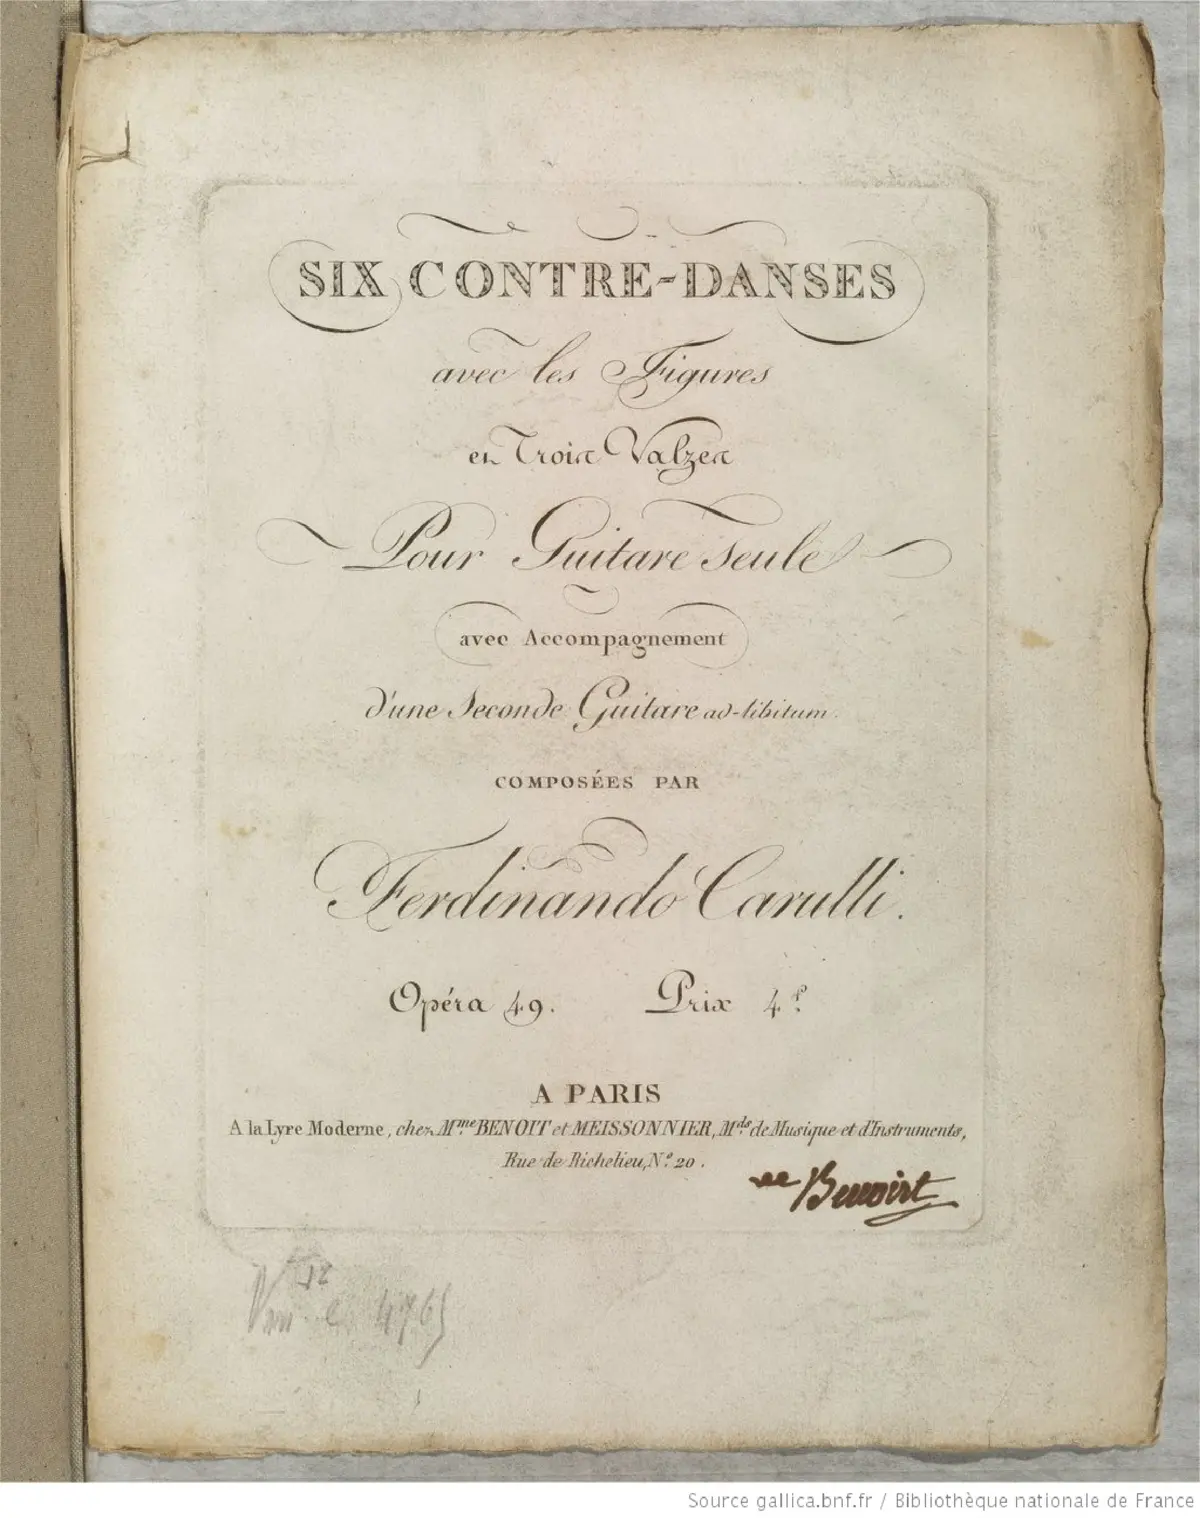 SIX CONTRE-DANSES
avec les Figures
et Trois Valzes
Pour Guitare Seule
avec Accompagnement
d'une Seconde Guitare ad-libitum.
COMPOSÉES PAR
Ferdinando Carulli.
Opéra 49. Prix 4f.
A PARIS
A la Lyre Moderne, chez Mme. BENOIT et MEISSONNIER, Mds. de Musique et d'Instruments,
Rue de Richelieu, No. 20.
Benoist
Vm
4765
Source gallica.bnf.fr / Bibliothèque nationale de France